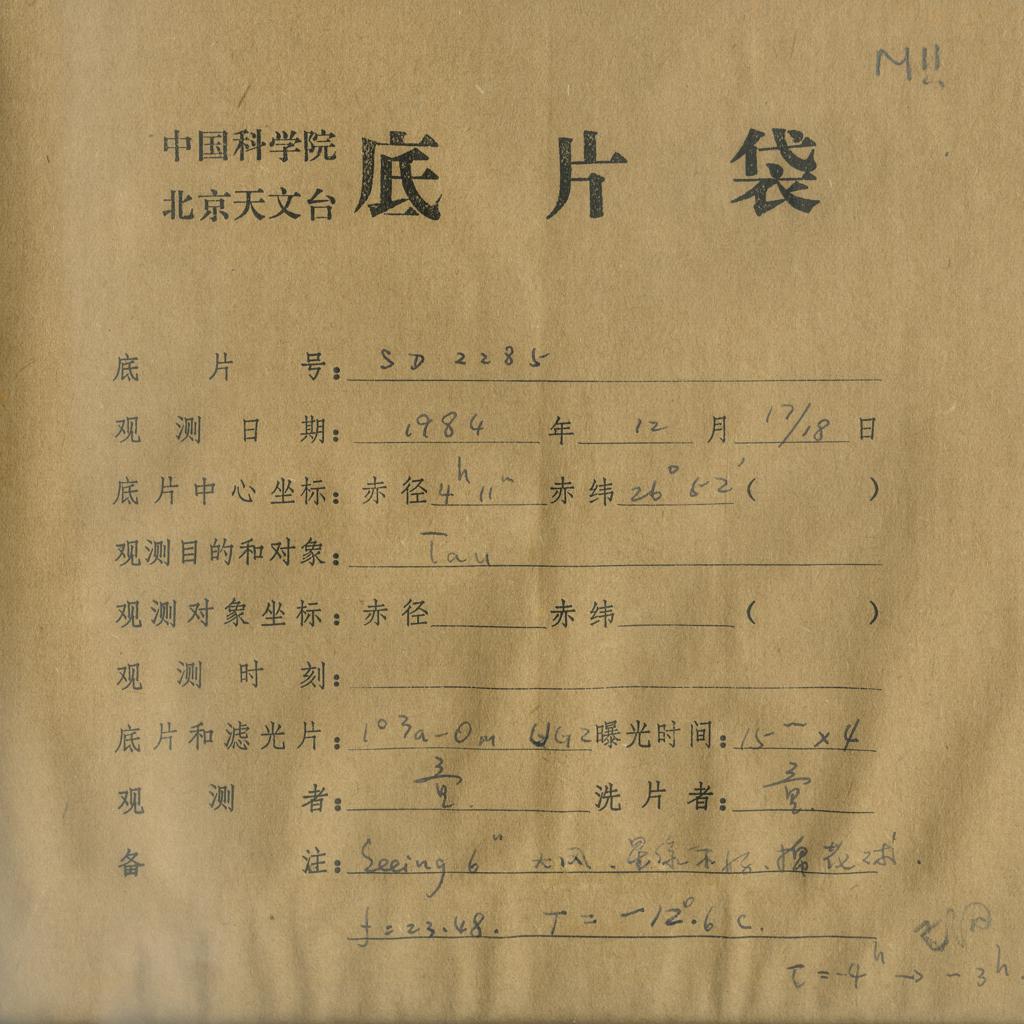 M11
中国科学院
北京天文台
底片袋
底片号：SD2285
观测日期：1984年12月17/18日
底片中心坐标：赤径4h11m赤纬26°52′（ ）
观测目的和对象：Tau
观测对象坐标：赤径 赤纬 （ ）
观测时刻：
底片和滤光片：103a-Om UG2曝光时间：15m×4
观测者： 洗片者：
备注：Seeing 6" 大风.星像不好.棉花球.
f=23.48. T=-12°.6 C.
τ=-4h→-3h.